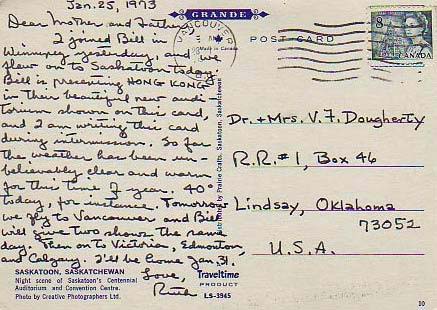 Jan. 25, 1973
Dear Mother and Father,
I joined Bill in
Winnipeg yesterday, and we
flew on to Saskatoon today.
Bill is presenting HONG KONG
in their beautiful new audi-
torium shown on this card,
and I am writing this card
during intermission. So far
the weather has been un-
believably clear and warm
for this time of year. 40°
today, for instance. Tomorrow
we fly to Vancouver and Bill
will give two shows the same
day. Then on to Victoria, Edmonton,
and Calgary. I'll be home Jan. 31.
Love,
SASKATOON, SASKATCHEWAN
Night scene of Saskatoon's Centennial
Auditorium and Convention Centre.
Photo by Creative Photographers Ltd.
GRANDE
Made in Canada
POST CARD
VANCOUVER
8
Distributed by Prairie Crafts, Saskatoon, Saskatchewan
Traveltime
PRODUCT
LS-3945
Dr. + Mrs. V. F. Dougherty
R.R. #1, Box 46
Lindsay, Oklahoma
73052
U.S.A.
10